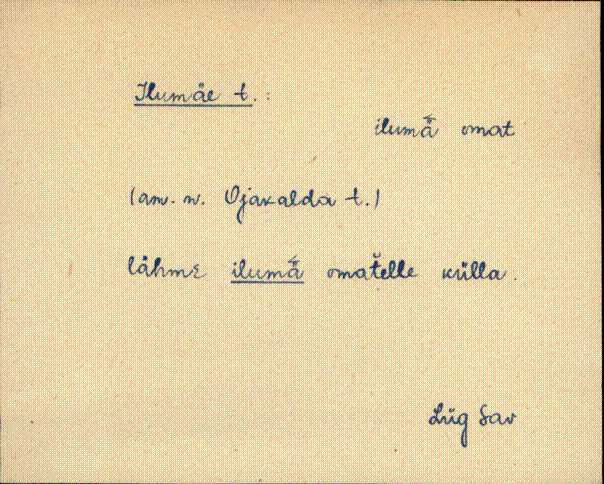 Ilumäe t.:
ilumä̆ omat
(am. n. Ojaкalda t.)
lähmε ilumä̆ omat̆elle кülla.
Lüg Sav